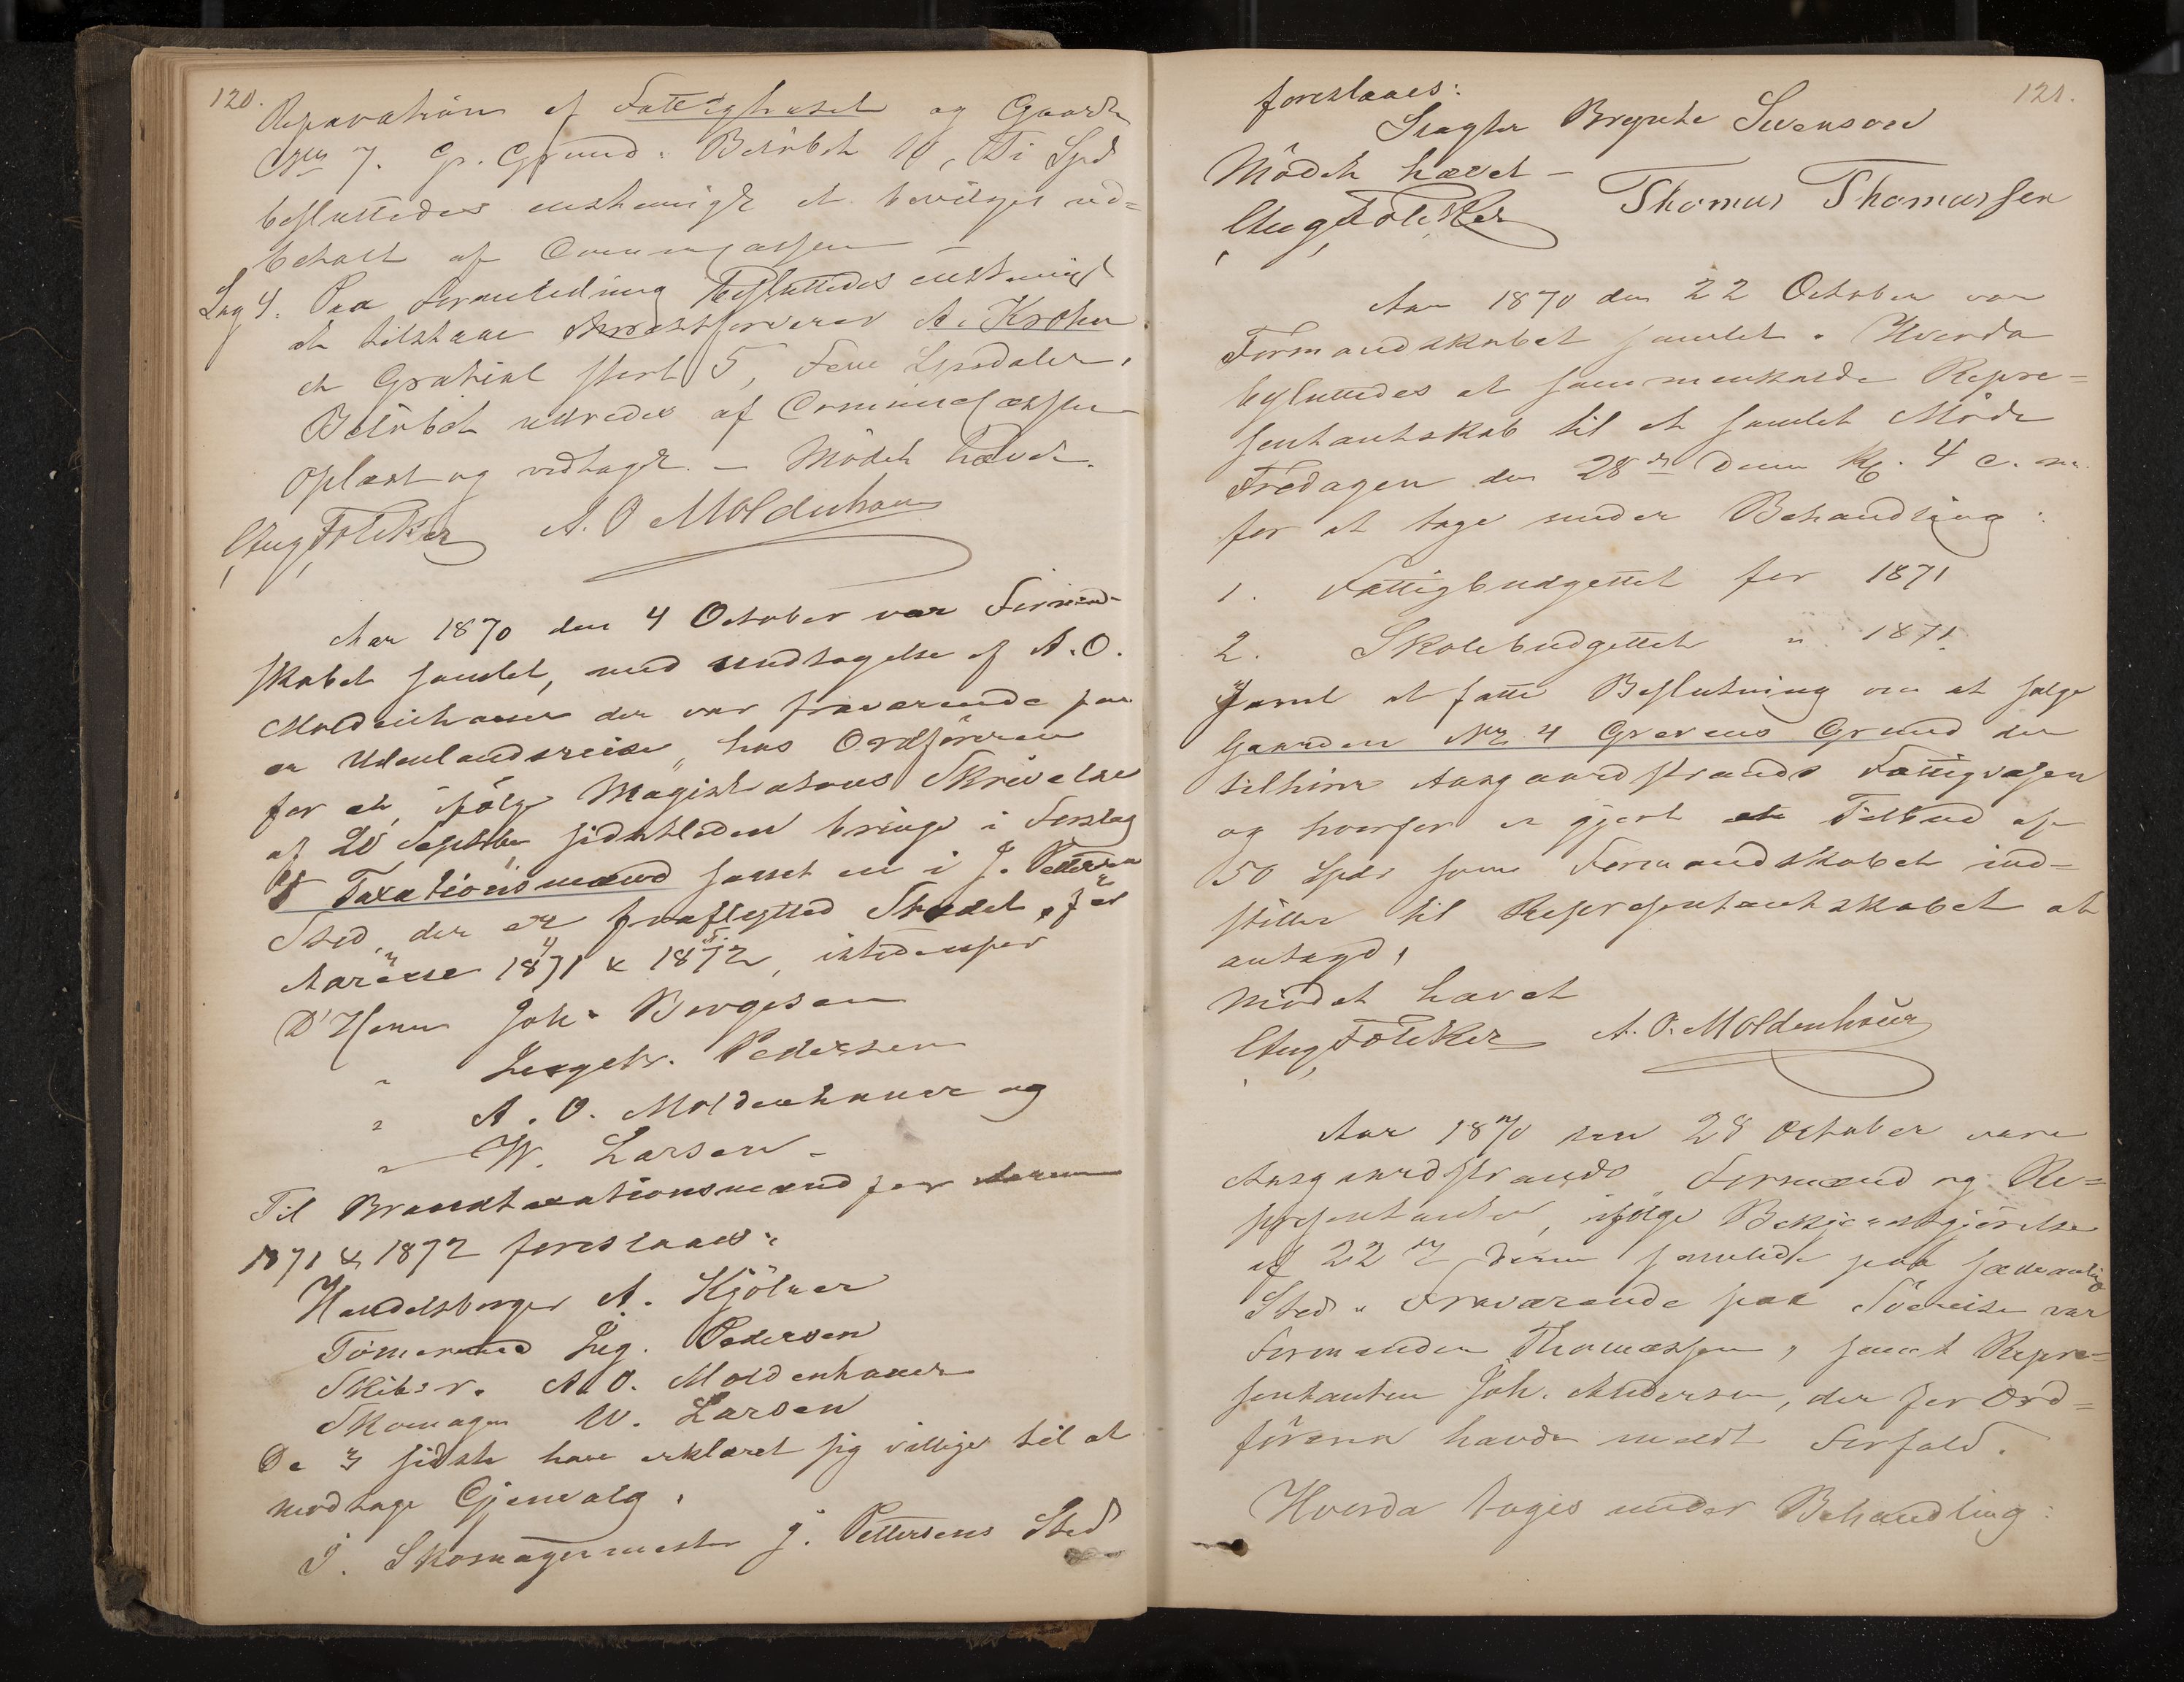 120.
Reparation af Fattighuset og Gaard
No 7. Gr. Grund. Belöbet 10, Ti Spd
besluttedes enstemigt at bevilges ud=
betalt af Communecassen –
Sag 4. Paa Formeledning besluttedes enstemigt
at tilstaae Arrestforvarer A. Krohn
et Gratiale stort 5, Fem Spedaler.
Belöbet udredes af Communecassen
Oplæst og vedtaget. – Mödet hævet.
Aug Fölcker A. O Moldenhauer
Aar 1870 den 4 October var Formand-
skabet samlet, med undtagelse af A. O.
Moldenhauer der var fraværende paa
en Udenlandsreise, hos Ordföreren
for at, ifölge Magistratens Skrivelse
af 20 Septbr sidstleden bringe i Forslag
4 Taxationsmænd samt en i J. Pettersens
Sted, der er fraflytted Stedet, for
Aarene 1871 & 1872, istedenfor
D'Herrer Joh. Borgesen
" Ingebr. Pedersen
" A. O. Moldenhauer og
" W. Larsen –
Til Brandtaxationsmænd for Aarene
1871 & 1872 foreslaaes:
Handelsborger A. Kjölner
Tömermand Ing. Pedersen
Skibsr. A. O. Moldenhauer
Skomager W. Larsen
De 3 sidste have erklæret sig villige til at
modtage Gjenvalg.
I. Skomagermester J. Pettersens Sted
121.
foreslaaes:
Slagter Brynte Svenson
Mödet hævet –
Aug Fölcker Thomas Thomassen
Aar 1870 den 22 October var
Formandskabet samlet. Hvorda
besluttedes at sammenkalde Repre=
sentantskab til et samlet Möde
Fredagen den 28de dennes Kl. 4 e. m.
for at tage under Behandling:
1. Fattigbudgettet for 1871
2. Skolebudgettet " 1871.
Samt at fatte Beslutning om at sælge
Gaarden No 4 Grevens Grund der
tilhörer Aasgaardstrands Fattigvæsen
og hvorfor er gjort et Tilbud af
50 Spdr som Formandskabet ind=
stiller til Representantskabet at
antage,
Mödet hævet
Aug Fölcker A. O. Moldenhauer
Aar 1870 den 28 October vare
Aasgaardstrands Formænd og Re=
presentanter, ifölge Bekjendtgjörelse
af 22de dennes samlede paa sædvanlig
Sted. Fraværende paa Söereise var
Formanden Thomassen, samt Repre=
sentanten Joh. Andersen, der for Ord=
föreren havde meldt Forfald.
Hvorda toges under Behandling: